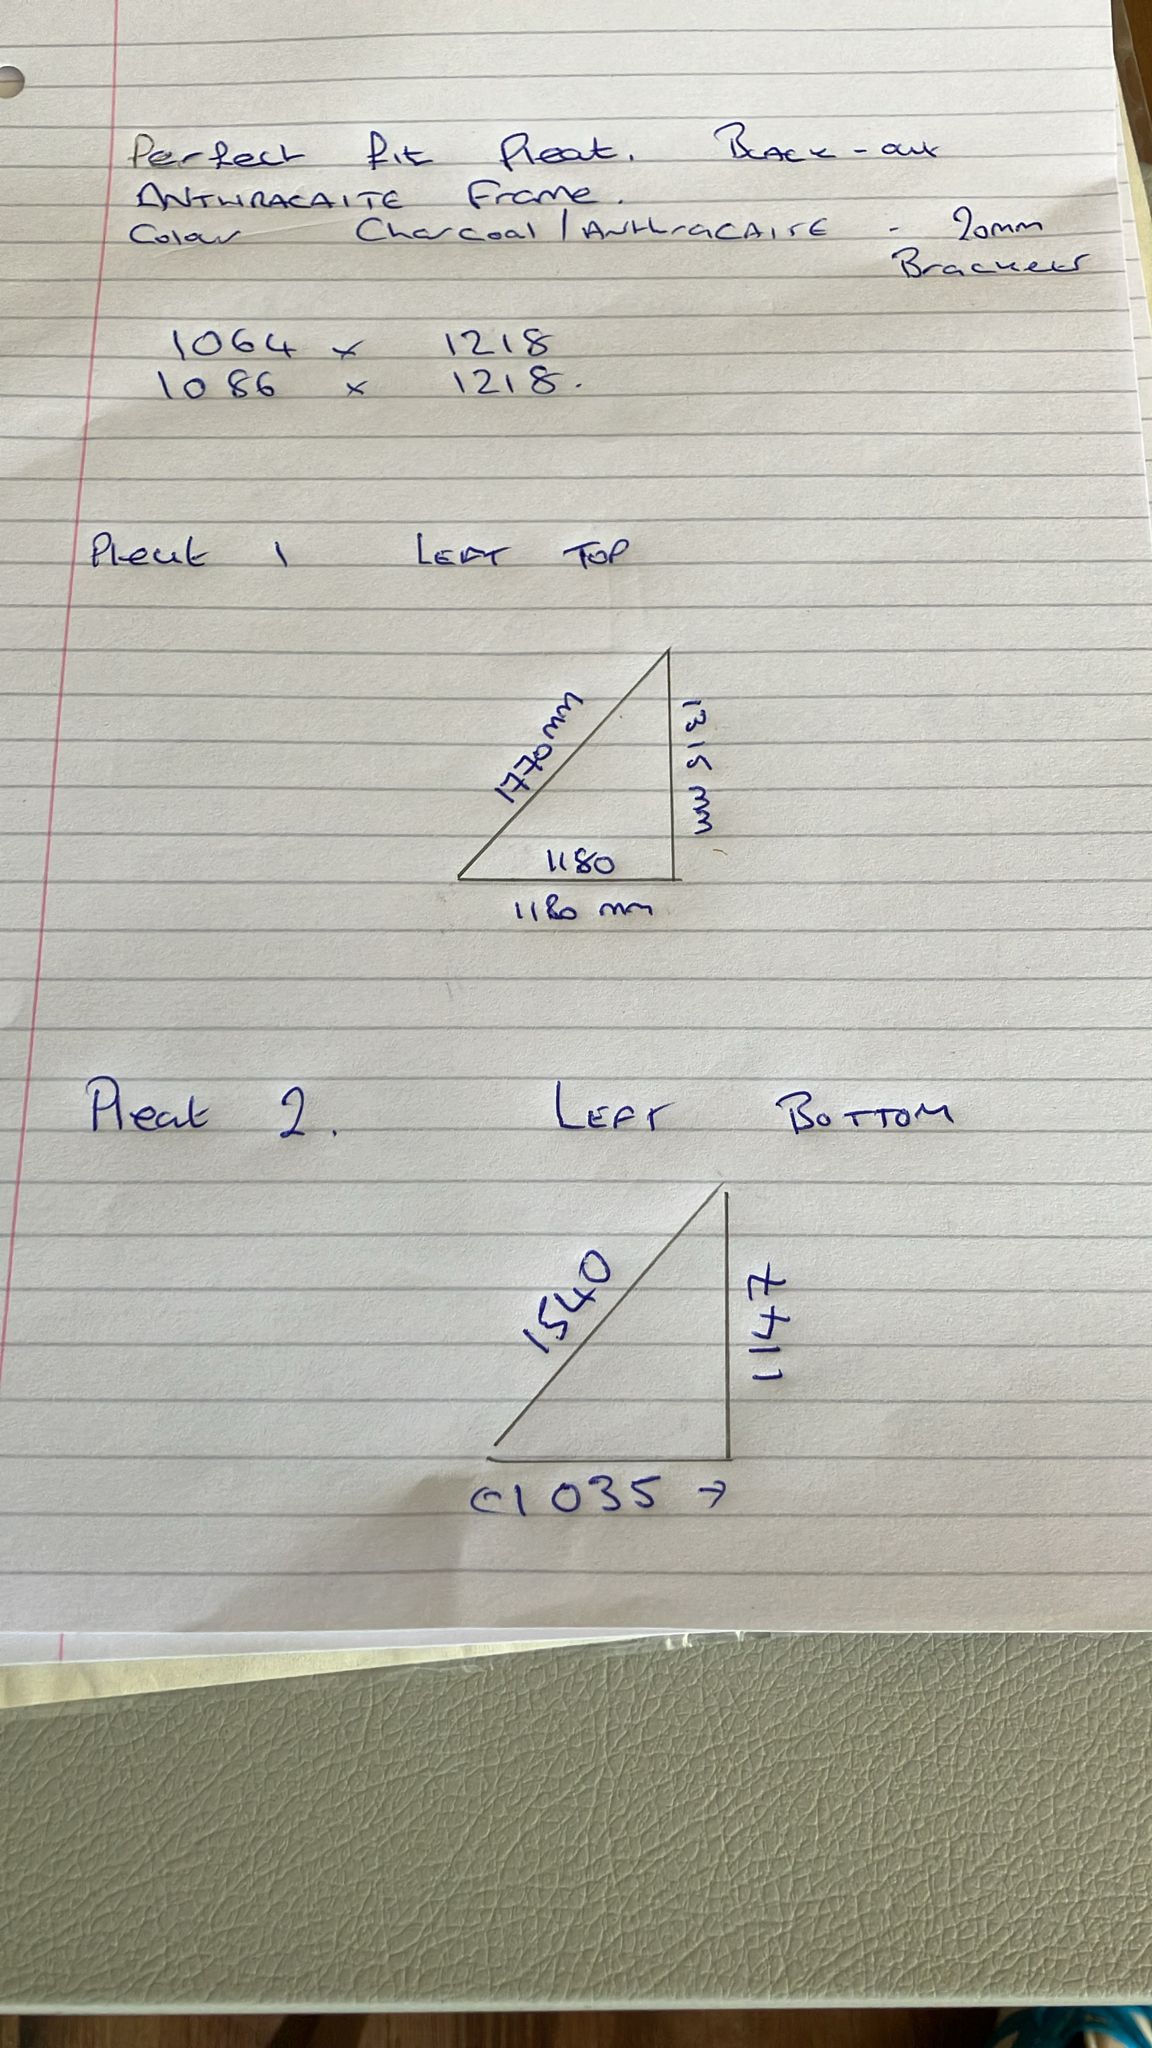 Perfect fit Pleat. BLACK-out
ANTHRACAITE Frame.
Colour Charcoal/ANTHrACAITE - 20mm
Brackets
1064 x 1218
1086 x 1218.
Pleat 1 LEFT TOP
1770mm
1315 mm
1180
1180 mm
Pleat 2. LEFT BOTTOM
1540
1147
←1035→